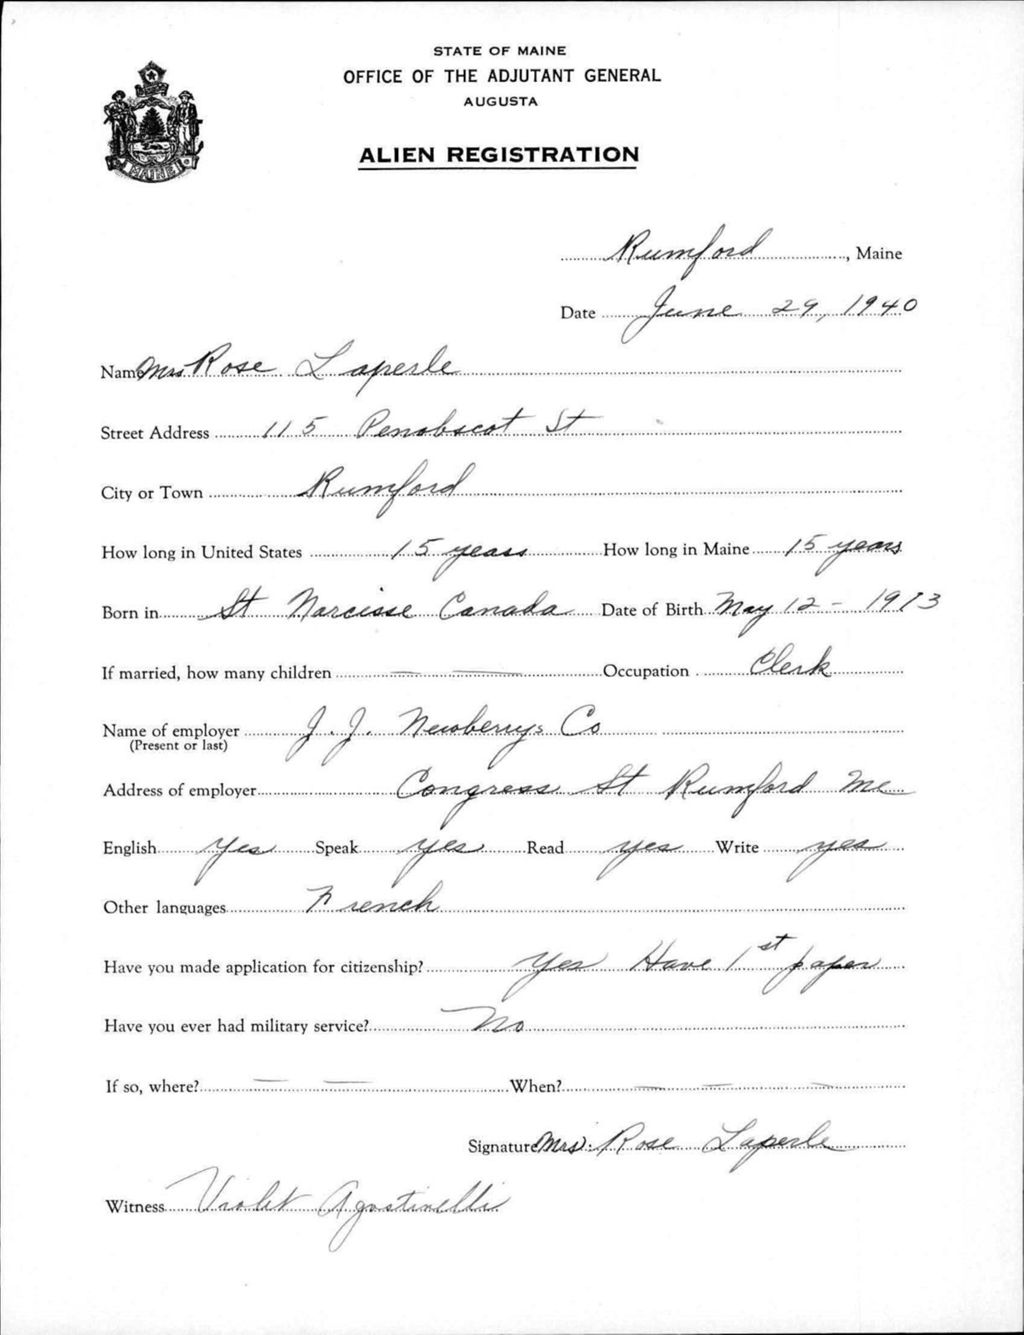 STATE OF MAINE
OFFICE OF THE ADJUTANT GENERAL
AUGUSTA
ALIEN REGISTRATION
MAINE
Rumford, Maine
Date June 29, 1940
Name Mrs Rose Laperle
Street Address 115 Penobscot St
City or Town Rumford
How long in United States 15 years How long in Maine 15 years
Born in St Narcisse Canada Date of Birth May 12 - 1913
If married, how many children — — Occupation Clerk
Name of employer J. J. Newberrys Co
(Present or last)
Address of employer Congress St Rumford Me
English Yes Speak yes Read yes Write yes
Other languages French
Have you made application for citizenship? Yes Have 1st paper
Have you ever had military service? No
If so, where? — — When? — — —
Signature Mrs. Rose Laperle
Witness Violet Agostinelli